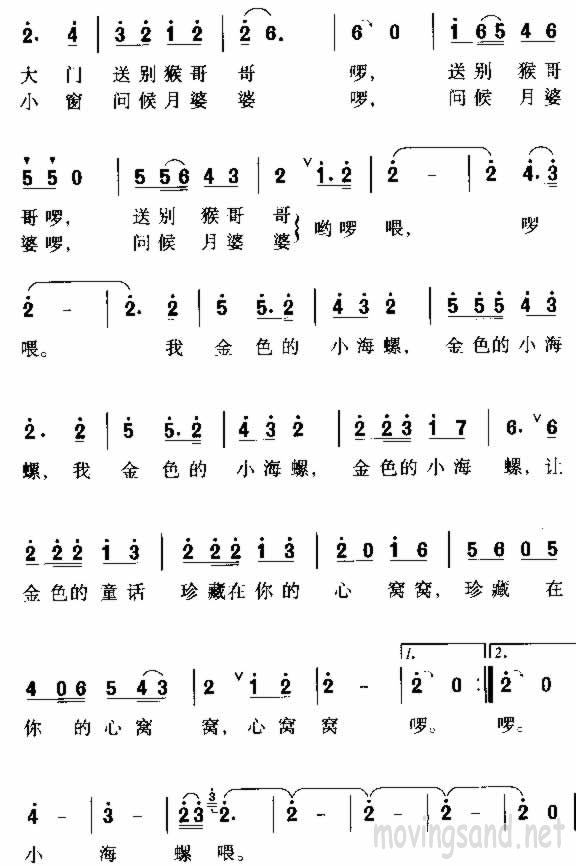 2. 4 | 3 2 1 2 | 2 6. | 6 0 | 1 6 5 4 6
大门 送别猴哥 哥 啰， 送别 猴哥
小窗 问候月婆 婆 啰， 问候 月婆
5 5 0 | 5 5 6 4 3 | 2 ∨ 1. 2 | 2 - | 2 4. 3
哥啰， 送别 猴哥 哥 哟啰 喂， 啰
婆啰， 问候 月婆 婆
2 - | 2. 2 | 5 5. 2 | 4 3 2 | 5 5 5 4 3
喂。 我 金 色的 小海 螺， 金色的 小海
2. 2 | 5 5. 2 | 4 3 2 | 2 2 3 1 7 | 6. ∨ 6
螺， 我 金 色的 小海螺， 金色的小海 螺，让
2 2 2 1 3 | 2 2 2 1 3 | 2 0 1 6 | 5 6 0 5
金色的 童话 珍藏在你的 心 窝窝， 珍藏 在
4 0 6 5 4 3 | 2 ∨ 1 2 | 2 - | 1. 2 0 :‖ 2. 2 0
你 的 心窝 窝，心窝 窝 啰。 啰。
4 - | 3 - | 2 3 3 2. | 2 - | 2 - | 2 0
小 海 螺 喂。
movingsand.net